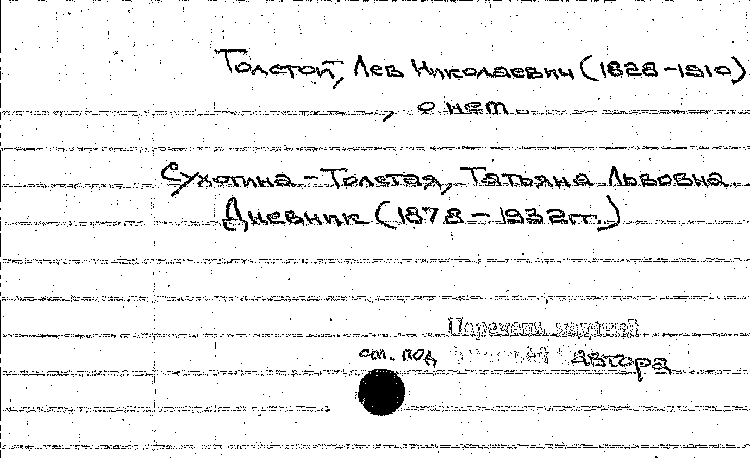 Толстой, Лев Николаевич (1828-1910)
, о нем
Сухотина-Толстая, Татьяна Львовна
Дневник (1878-1932гг.)
см. под автора